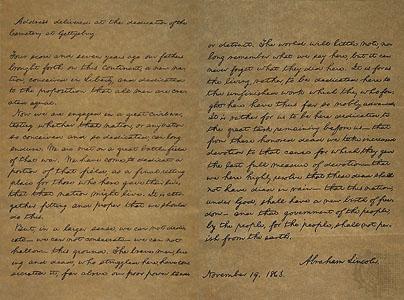 Address delivered at the dedication of the
Cemetery at Gettysburg.
Four score and seven years ago our fathers
brought forth on this continent, a new na-
tion, conceived in liberty, and dedicated
to the proposition that all men are cre-
ated equal.
Now we are engaged in a great civil war,
testing whether that nation, or any nation
so conceived and so dedicated, can long
endure. We are met on a great battle field
of that war. We have come to dedicate a
portion of that field, as a final resting
place for those who here gave their lives
that that nation might live. It is alto-
gether fitting and proper that we should
do this.
But, in a larger sense, we can not dedi-
cate— we can not consecrate— we can not
hallow— this ground. The brave men, liv-
ing and dead, who struggled here have con-
secrated it, far above our poor power to add
or detract. The world will little note, nor
long remember what we say here, but it can
never forget what they did here. It is for us
the living, rather, to be dedicated here to
the unfinished work which they who fou-
ght here have thus far so nobly advanced.
It is rather for us to be here dedicated to
the great task remaining before us— that
from these honored dead we take increased
devotion to that cause for which they gave
the last full measure of devotion— that
we here highly resolve that these dead shall
not have died in vain— that this nation,
under God, shall have a new birth of free-
dom— and that government of the people,
by the people, for the people, shall not per-
ish from the earth.
Abraham Lincoln.
November 19, 1863.